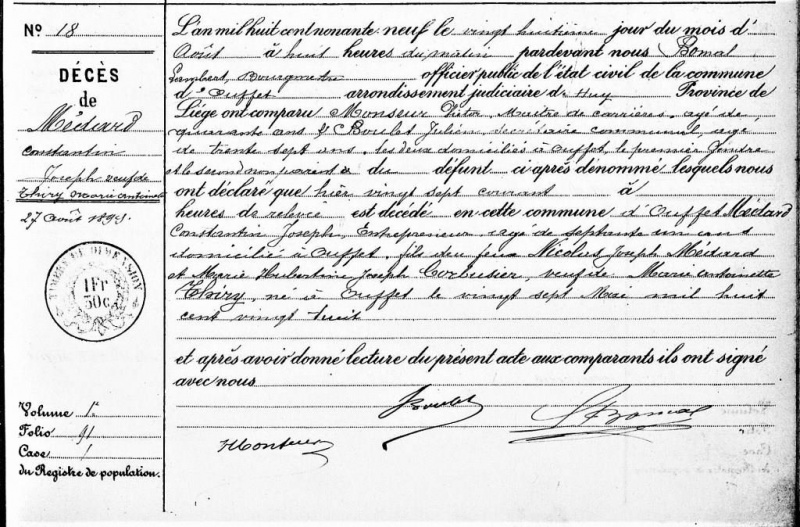 Nº 18
DÉCÈS
de
Médard
Constantin
Joseph veuf de
Thiry Marie Antoinette
27 Août 1899.
TIMBRE DE DIMENSION
1 Fr
30 c.
Volume 1
Folio 91
Case 1
du Registre de population.
L'an mil huit cent nonante neuf le vingt huitième jour du mois d'
Août à huit heures du matin pardevant nous Bomal
Lambert, Bourgmestre officier public de l'état civil de la commune
d'Ouffet arrondissement judiciaire de Huy Province de
Liége ont comparu Monseur Victor, Maitre de carrières, agé de
quarante ans & Boulet Julien, secrétaire communal, agé
de trente sept ans, les deux domiciliés à Ouffet, le premier gendre
et le second non parent du défunt ci après dénommé lesquels nous
ont déclaré que hier vingt sept courant à
heures de relevée est décédé en cette commune d'Ouffet Médard
Constantin Joseph, Entrepreneur agé de septante un ans
domicilié à Ouffet, fils des feux Nicolas Joseph Médard
et Marie Hubertine Joseph Corbusier, veuf de Marie Antoinette
Thiry, né à Ouffet le vingt sept Mai mil huit
cent vingt huit
et après avoir donné lecture du présent acte aux comparants ils ont signé
avec nous
JBoulet
LBomal
VMonseur